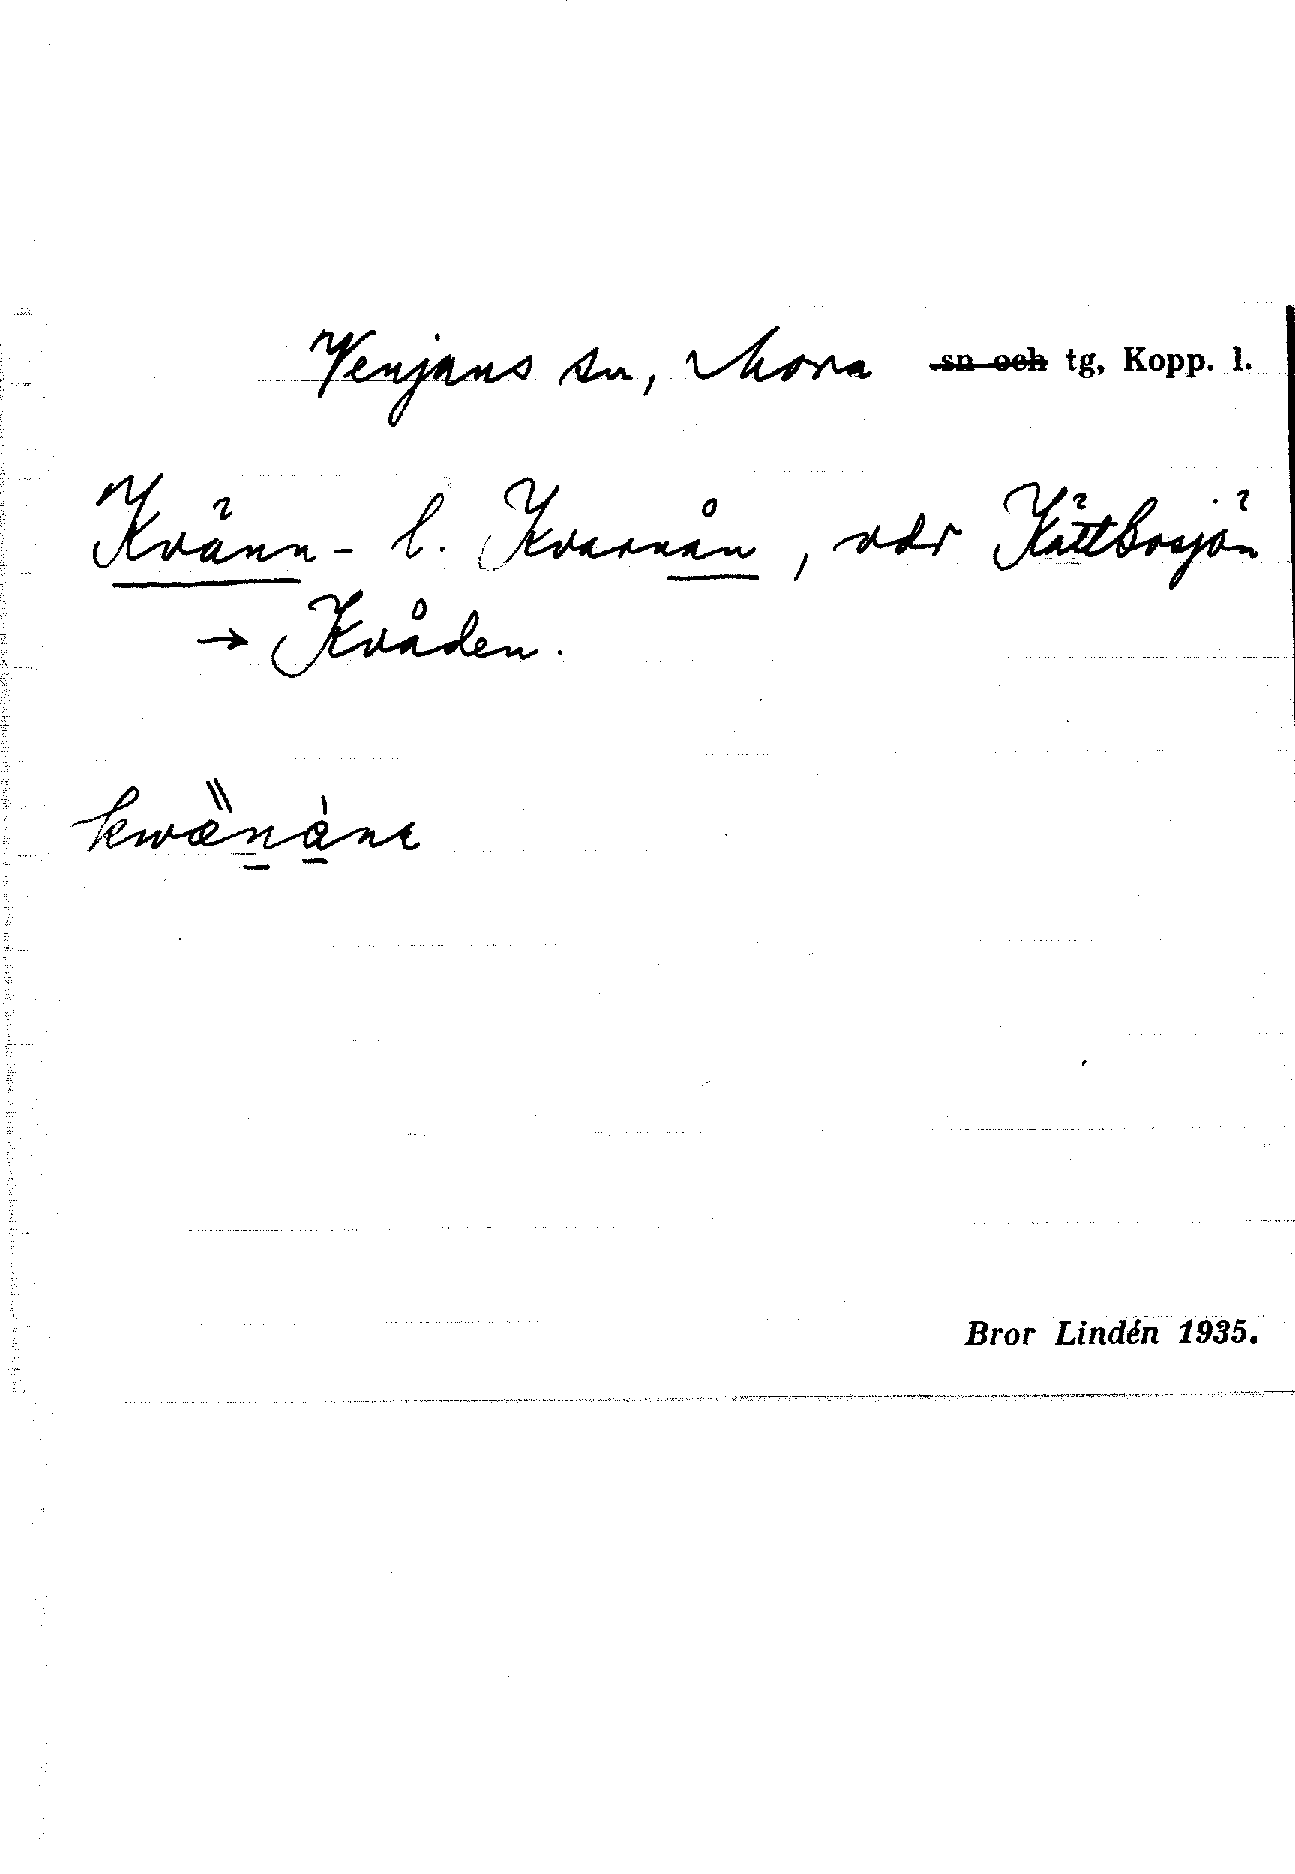 Venjans sn, Mora sn och tg, Kopp. l.
Kvänn- l. Kvarnån, vdr Kättbosjön
→ Kvåden.
kwänåne
Bror Lindén 1935.